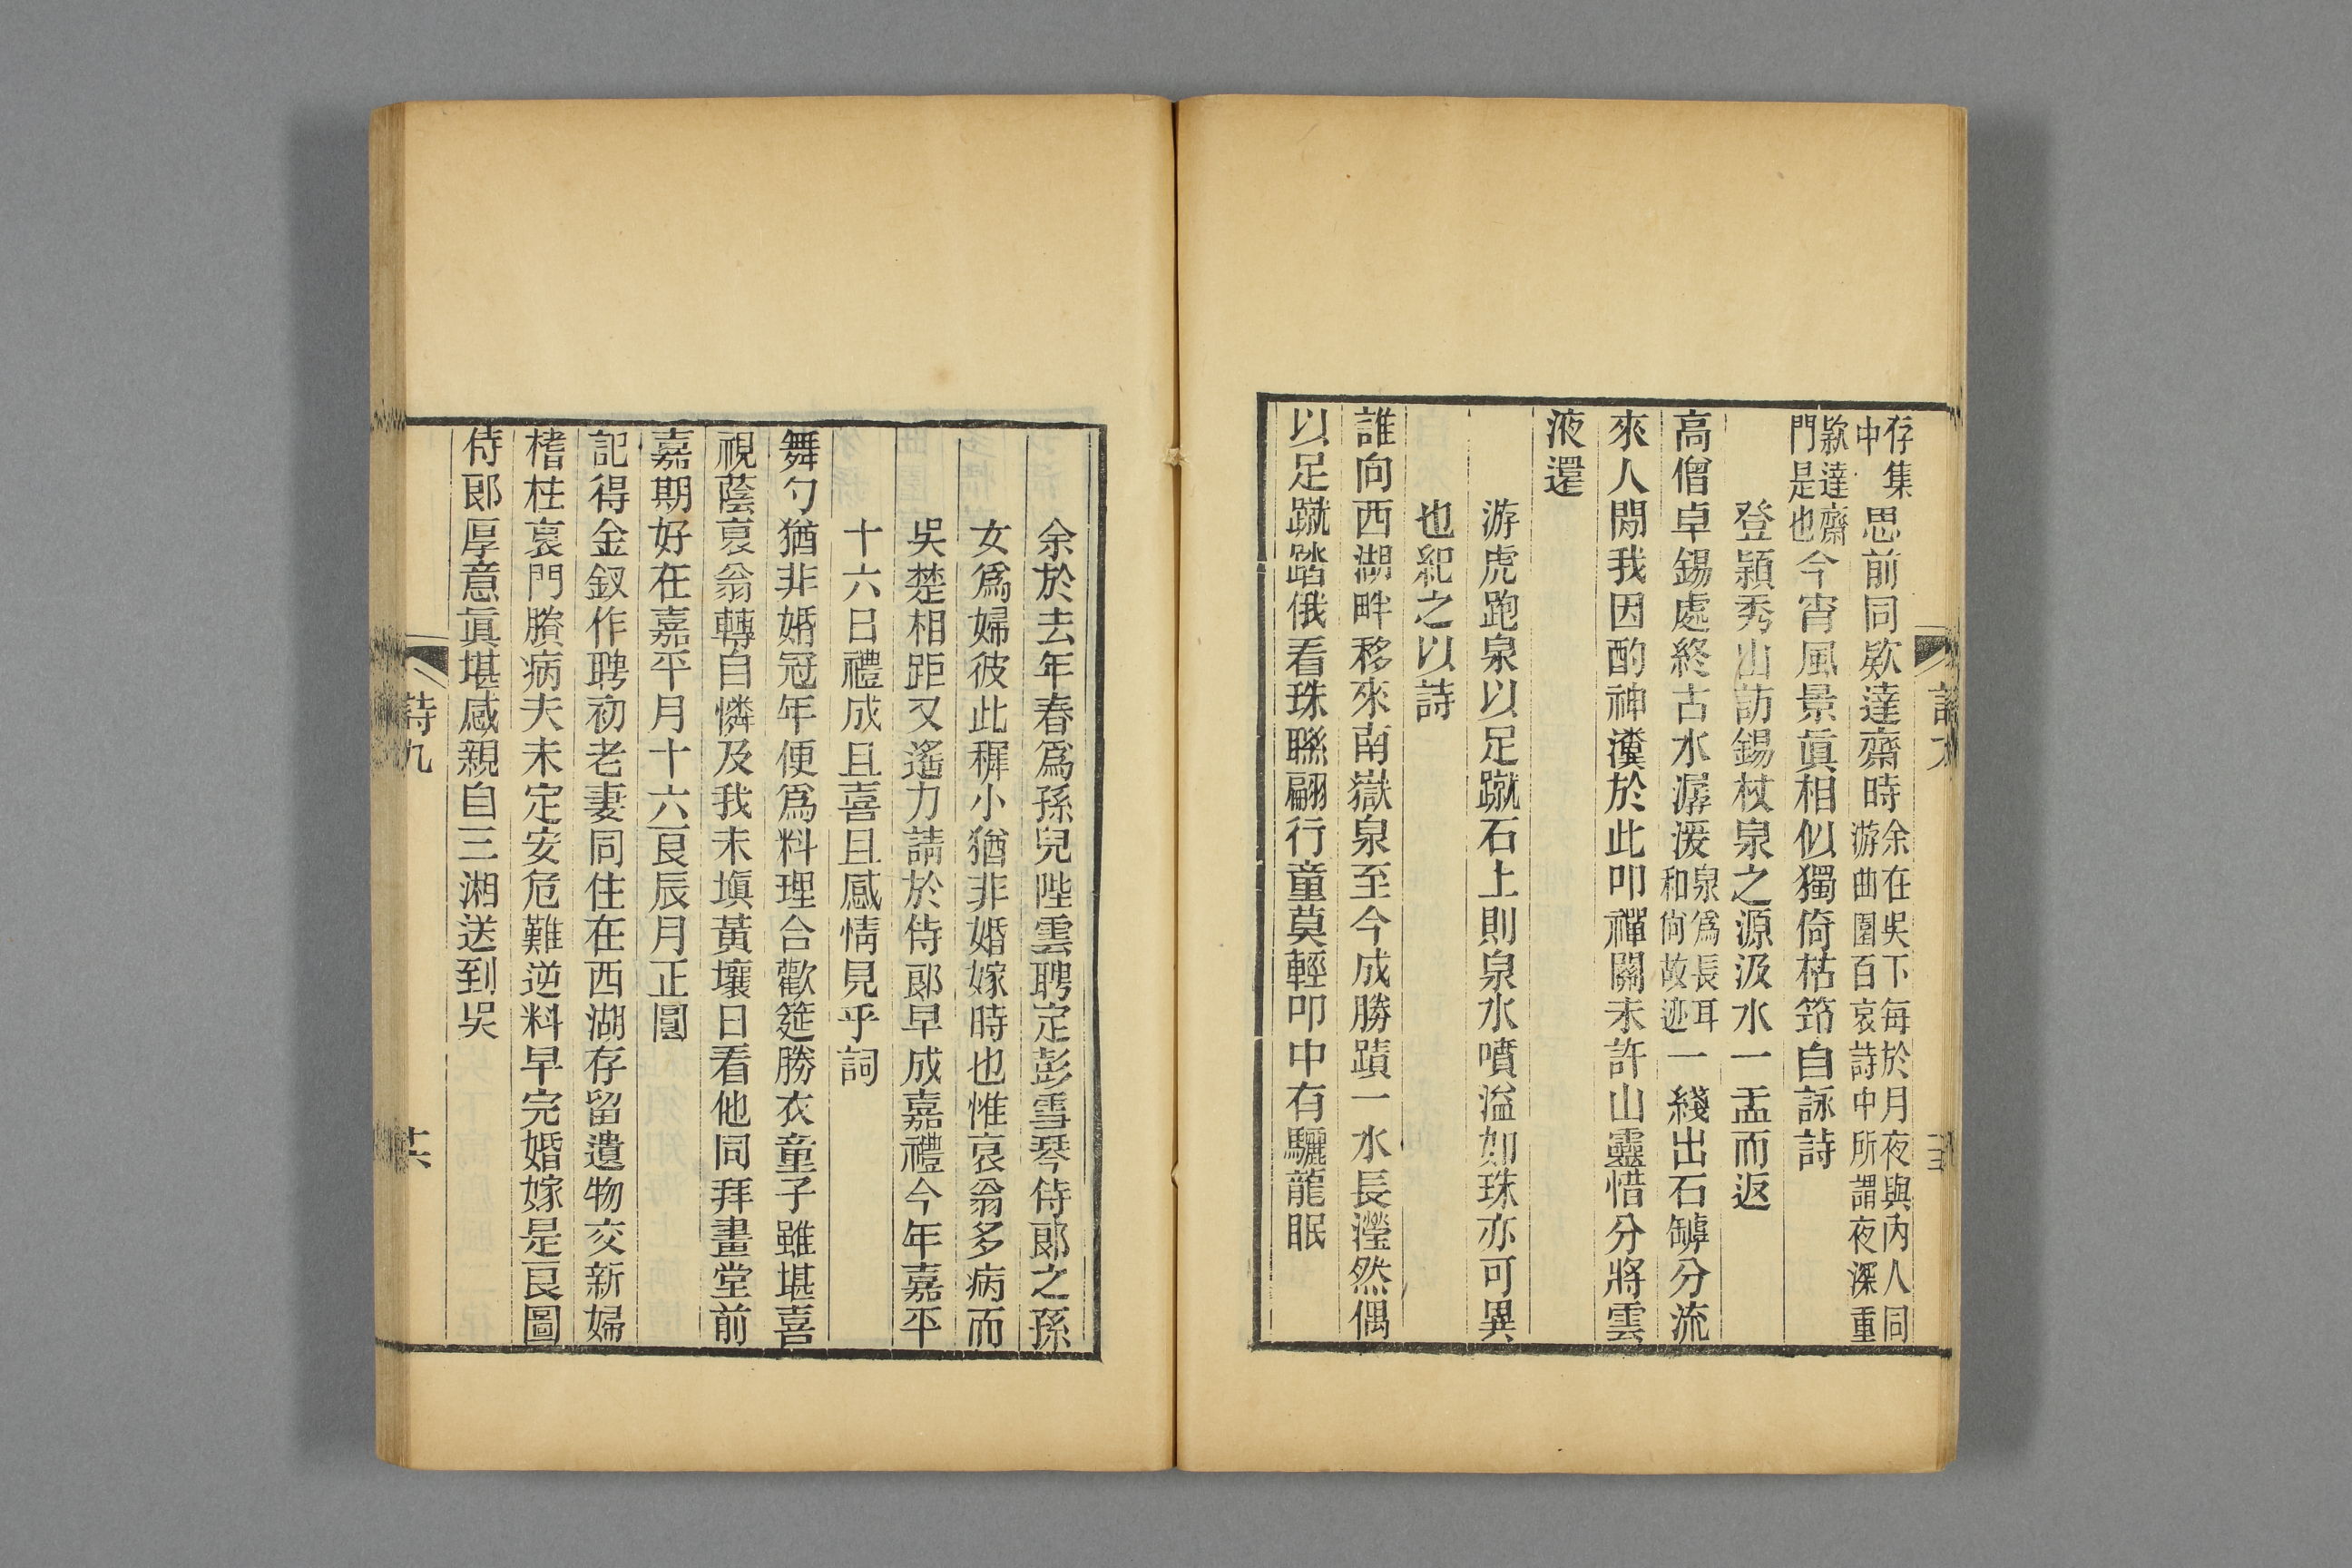 存集中思前同欵達齋時余在吳下每於月夜與內人同游曲園百哀詩中所謂夜深重
欵達齋門是也今宵風景眞相似獨倚枯筇自詠詩
登穎秀山訪錫杖泉之源汲水一盂而返
高僧卓錫處終古水潺湲泉爲長耳和尙故迹一綫出石罅分流
來人閒我因酌神瀵於此叩禪關未許山靈惜分將雲
液還
游虎跑泉以足蹴石上則泉水噴溢如珠亦可異
也紀之以詩
誰向西湖畔移來南嶽泉至今成勝蹟一水長瀅然偶
以足蹴踏俄看珠聯翩行童莫輕叩中有驪龍眠
余於去年春爲孫兒陛雲聘定彭雪琴侍郞之孫
女爲婦彼此穉小猶非婚嫁時也惟衰翁多病而
吳楚相距又遙力請於侍郞早成嘉禮今年嘉平
十六日禮成且喜且感情見乎詞
舞勺猶非婚冠年便爲料理合歡筵勝衣童子雖堪喜
視蔭衰翁轉自憐及我未塡黃壤日看他同拜畫堂前
嘉期好在嘉平月十六良辰月正圓
記得金釵作聘初老妻同住在西湖存留遺物交新婦
榰柱衰門賸病夫未定安危難逆料早完婚嫁是良圖
侍郞厚意眞堪感親自三湘送到吳
詩九